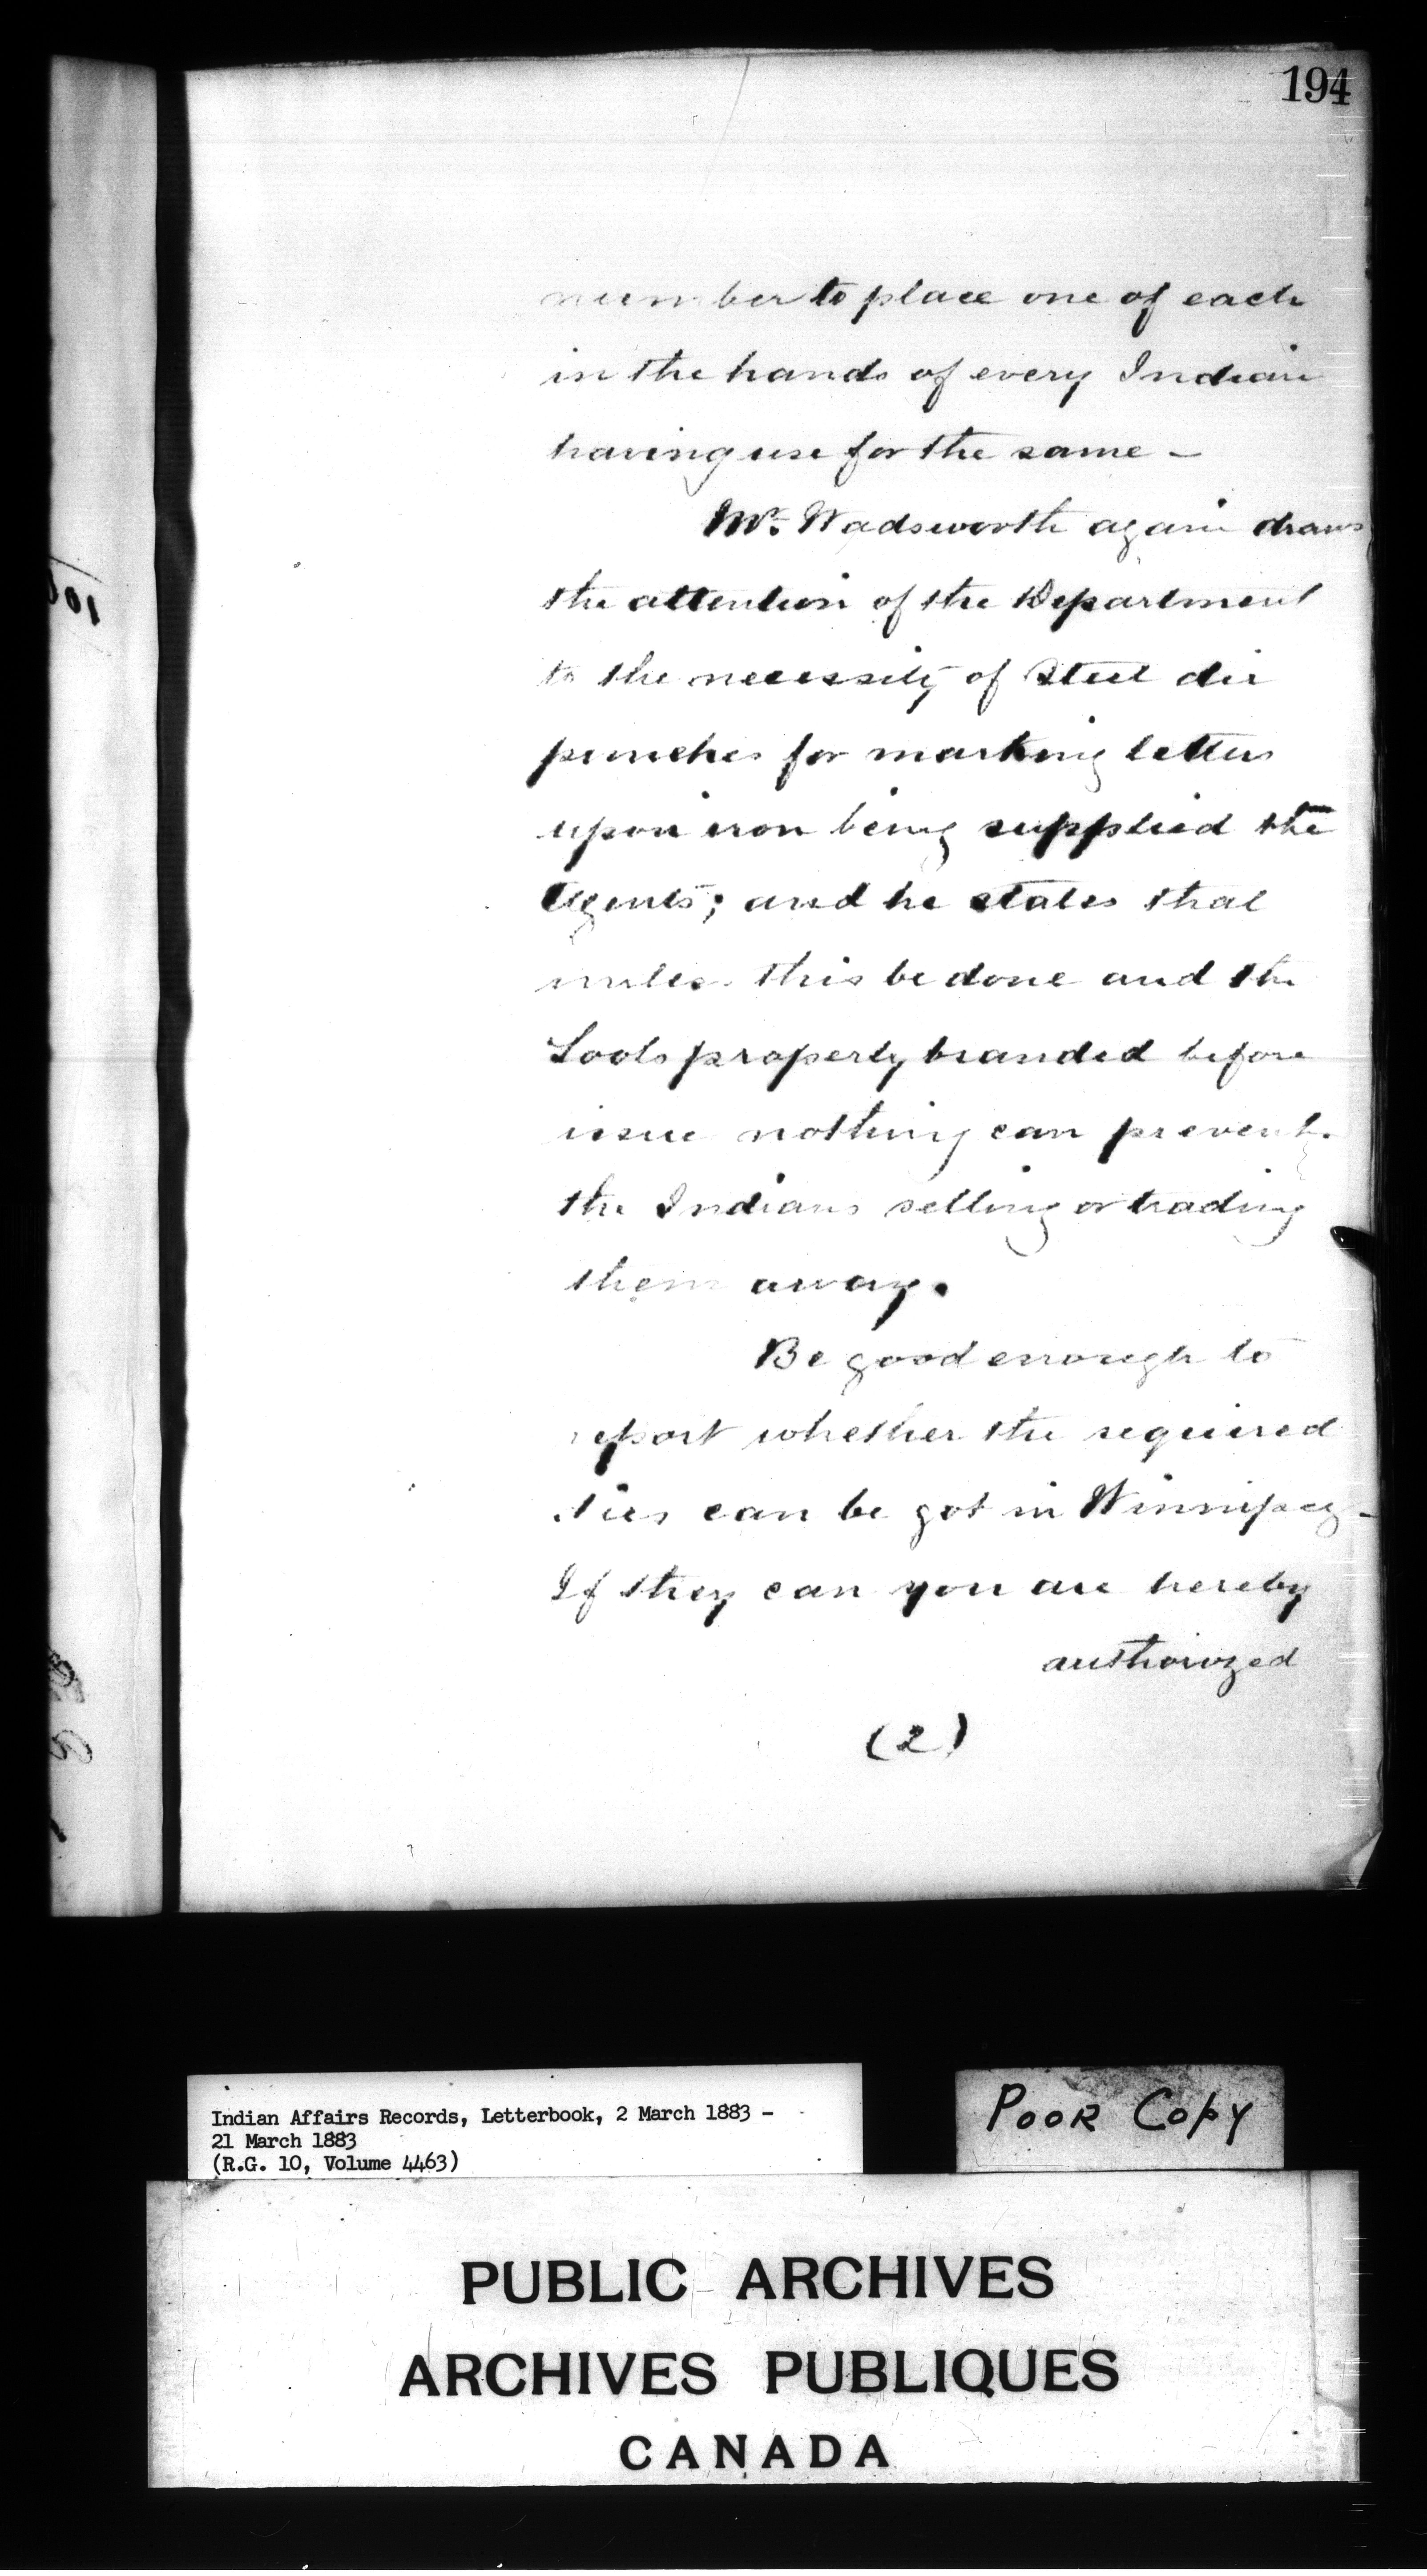 194
number to place one of each
in the hands of every Indian
having use for the same -
Mr. Wadsworth again draws
the attention of the Department
to the necessity of Steel die
punches for marking letters
upon iron being supplied the
Agents; and he states that
unless this be done and the
Tools properly branded before
issue nothing can prevent
the Indians selling or trading
them away.
Be good enough to
report whether the required
dies can be got in Winnipeg -
If they can you are hereby
authorized
(2)
Indian Affairs Records, Letterbook, 2 March 1883 -
21 March 1883
(R.G. 10, Volume 4463)
POOR COPY
PUBLIC ARCHIVES
ARCHIVES PUBLIQUES
CANADA